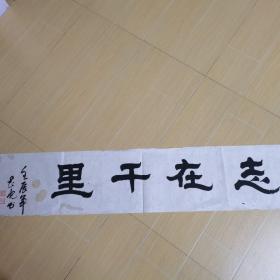 志在千里
壬辰年